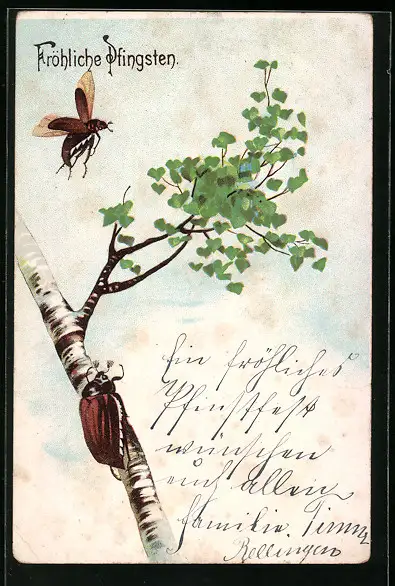 Fröhliche Pfingsten.
Ein fröhliches
Pfinstfest
wünschen
euch allen
Familie. Timm
Rellingen